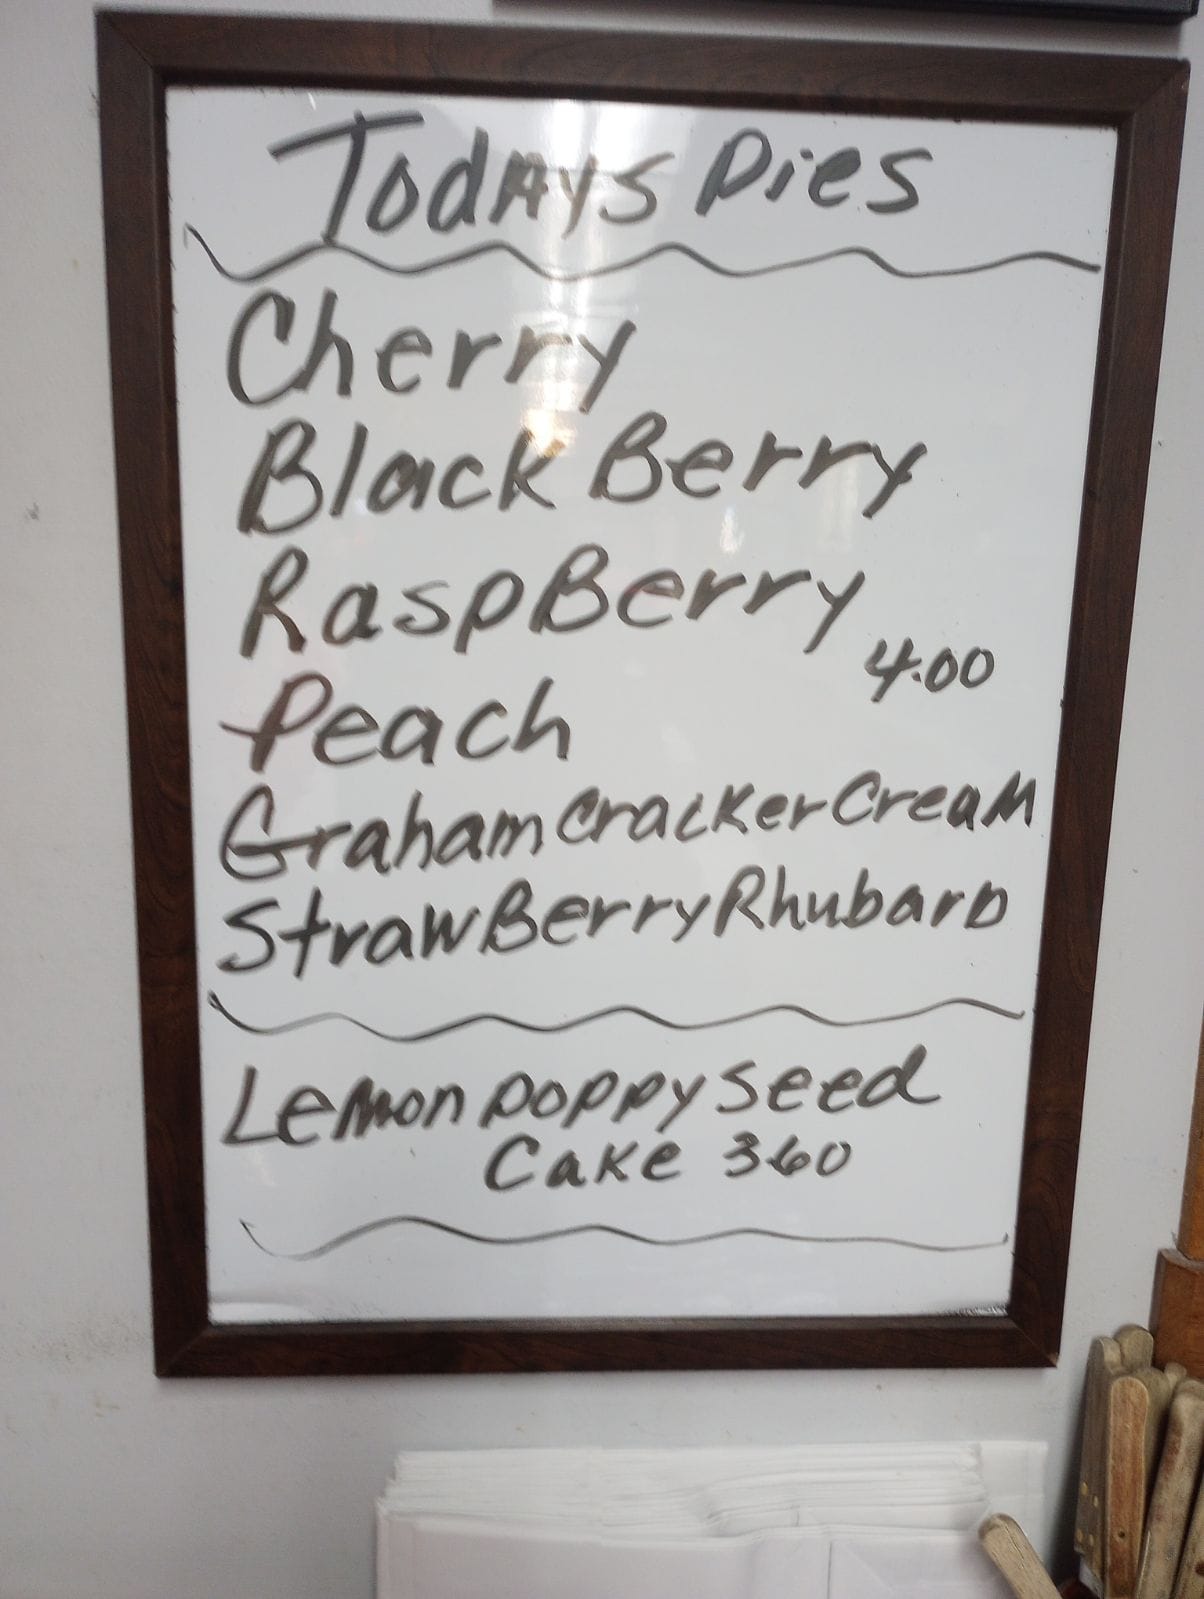 Todays Pies
Cherry
Black Berry
RaspBerry
4.00
Peach
Graham Cracker Cream
StrawBerry Rhubarb
Lemon poppy seed
Cake 3.60